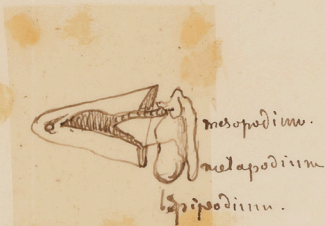 mesopodium.
metapodium
Epipodium.